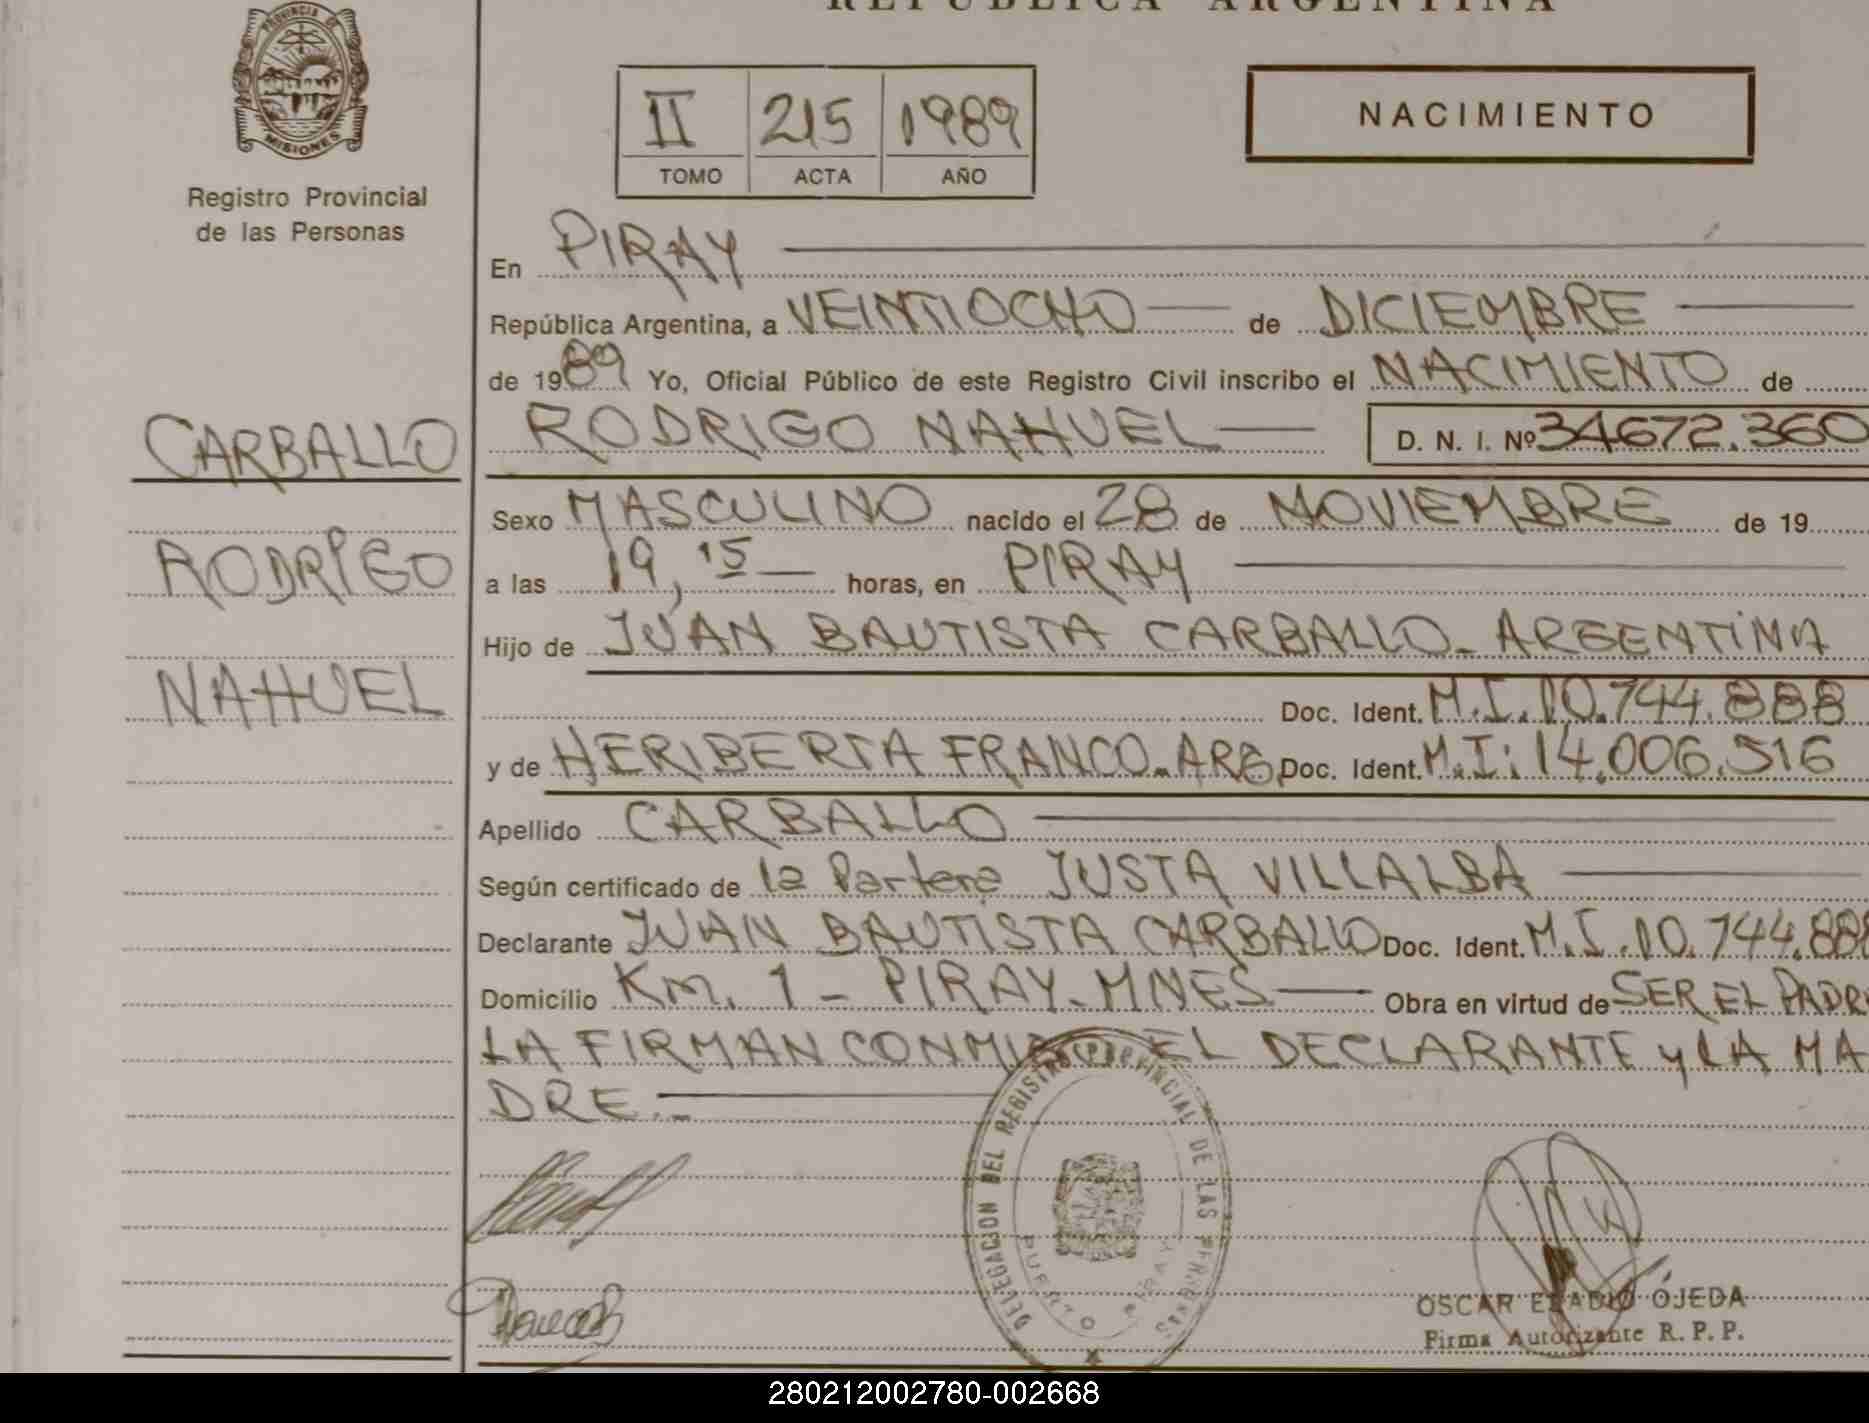 REPUBLICA ARGENTINA
PROVINCIA DE
MISIONES
Registro Provincial
de las Personas
II 215 1989
TOMO ACTA AÑO
NACIMIENTO
En PIRAY
República Argentina, a VEINTIOCHO de DICIEMBRE
de 1989 Yo, Oficial Público de este Registro Civil inscribo el NACIMIENTO de
RODRIGO NAHUEL D. N. I. Nº 34672.360
CARBALLO
RODRIGO
NAHUEL
Sexo MASCULINO nacido el 28 de NOVIEMBRE de 19
a las 19,15 horas, en PIRAY
Hijo de JUAN BAUTISTA CARBALLO- ARGENTINA
Doc. Ident. M.I.10.744.888
y de HERIBERTA FRANCO-ARG. Doc. Ident. M.I: 14.006.516
Apellido CARBALLO
Según certificado de la Partera JUSTA VILLALBA
Declarante JUAN BAUTISTA CARBALLO Doc. Ident. M.I.10.744.888
Domicilio Km. 1 - PIRAY-MNES Obra en virtud de SER EL PADRE
LA FIRMAN CONMIGO EL DECLARANTE y LA MA
DRE.-
DELEGACION DEL REGISTRO PROVINCIAL DE LAS PERSONAS
PUERTO PIRAY
OSCAR ELADIO OJEDA
Firma Autorizante R. P. P.
280212002780-002668